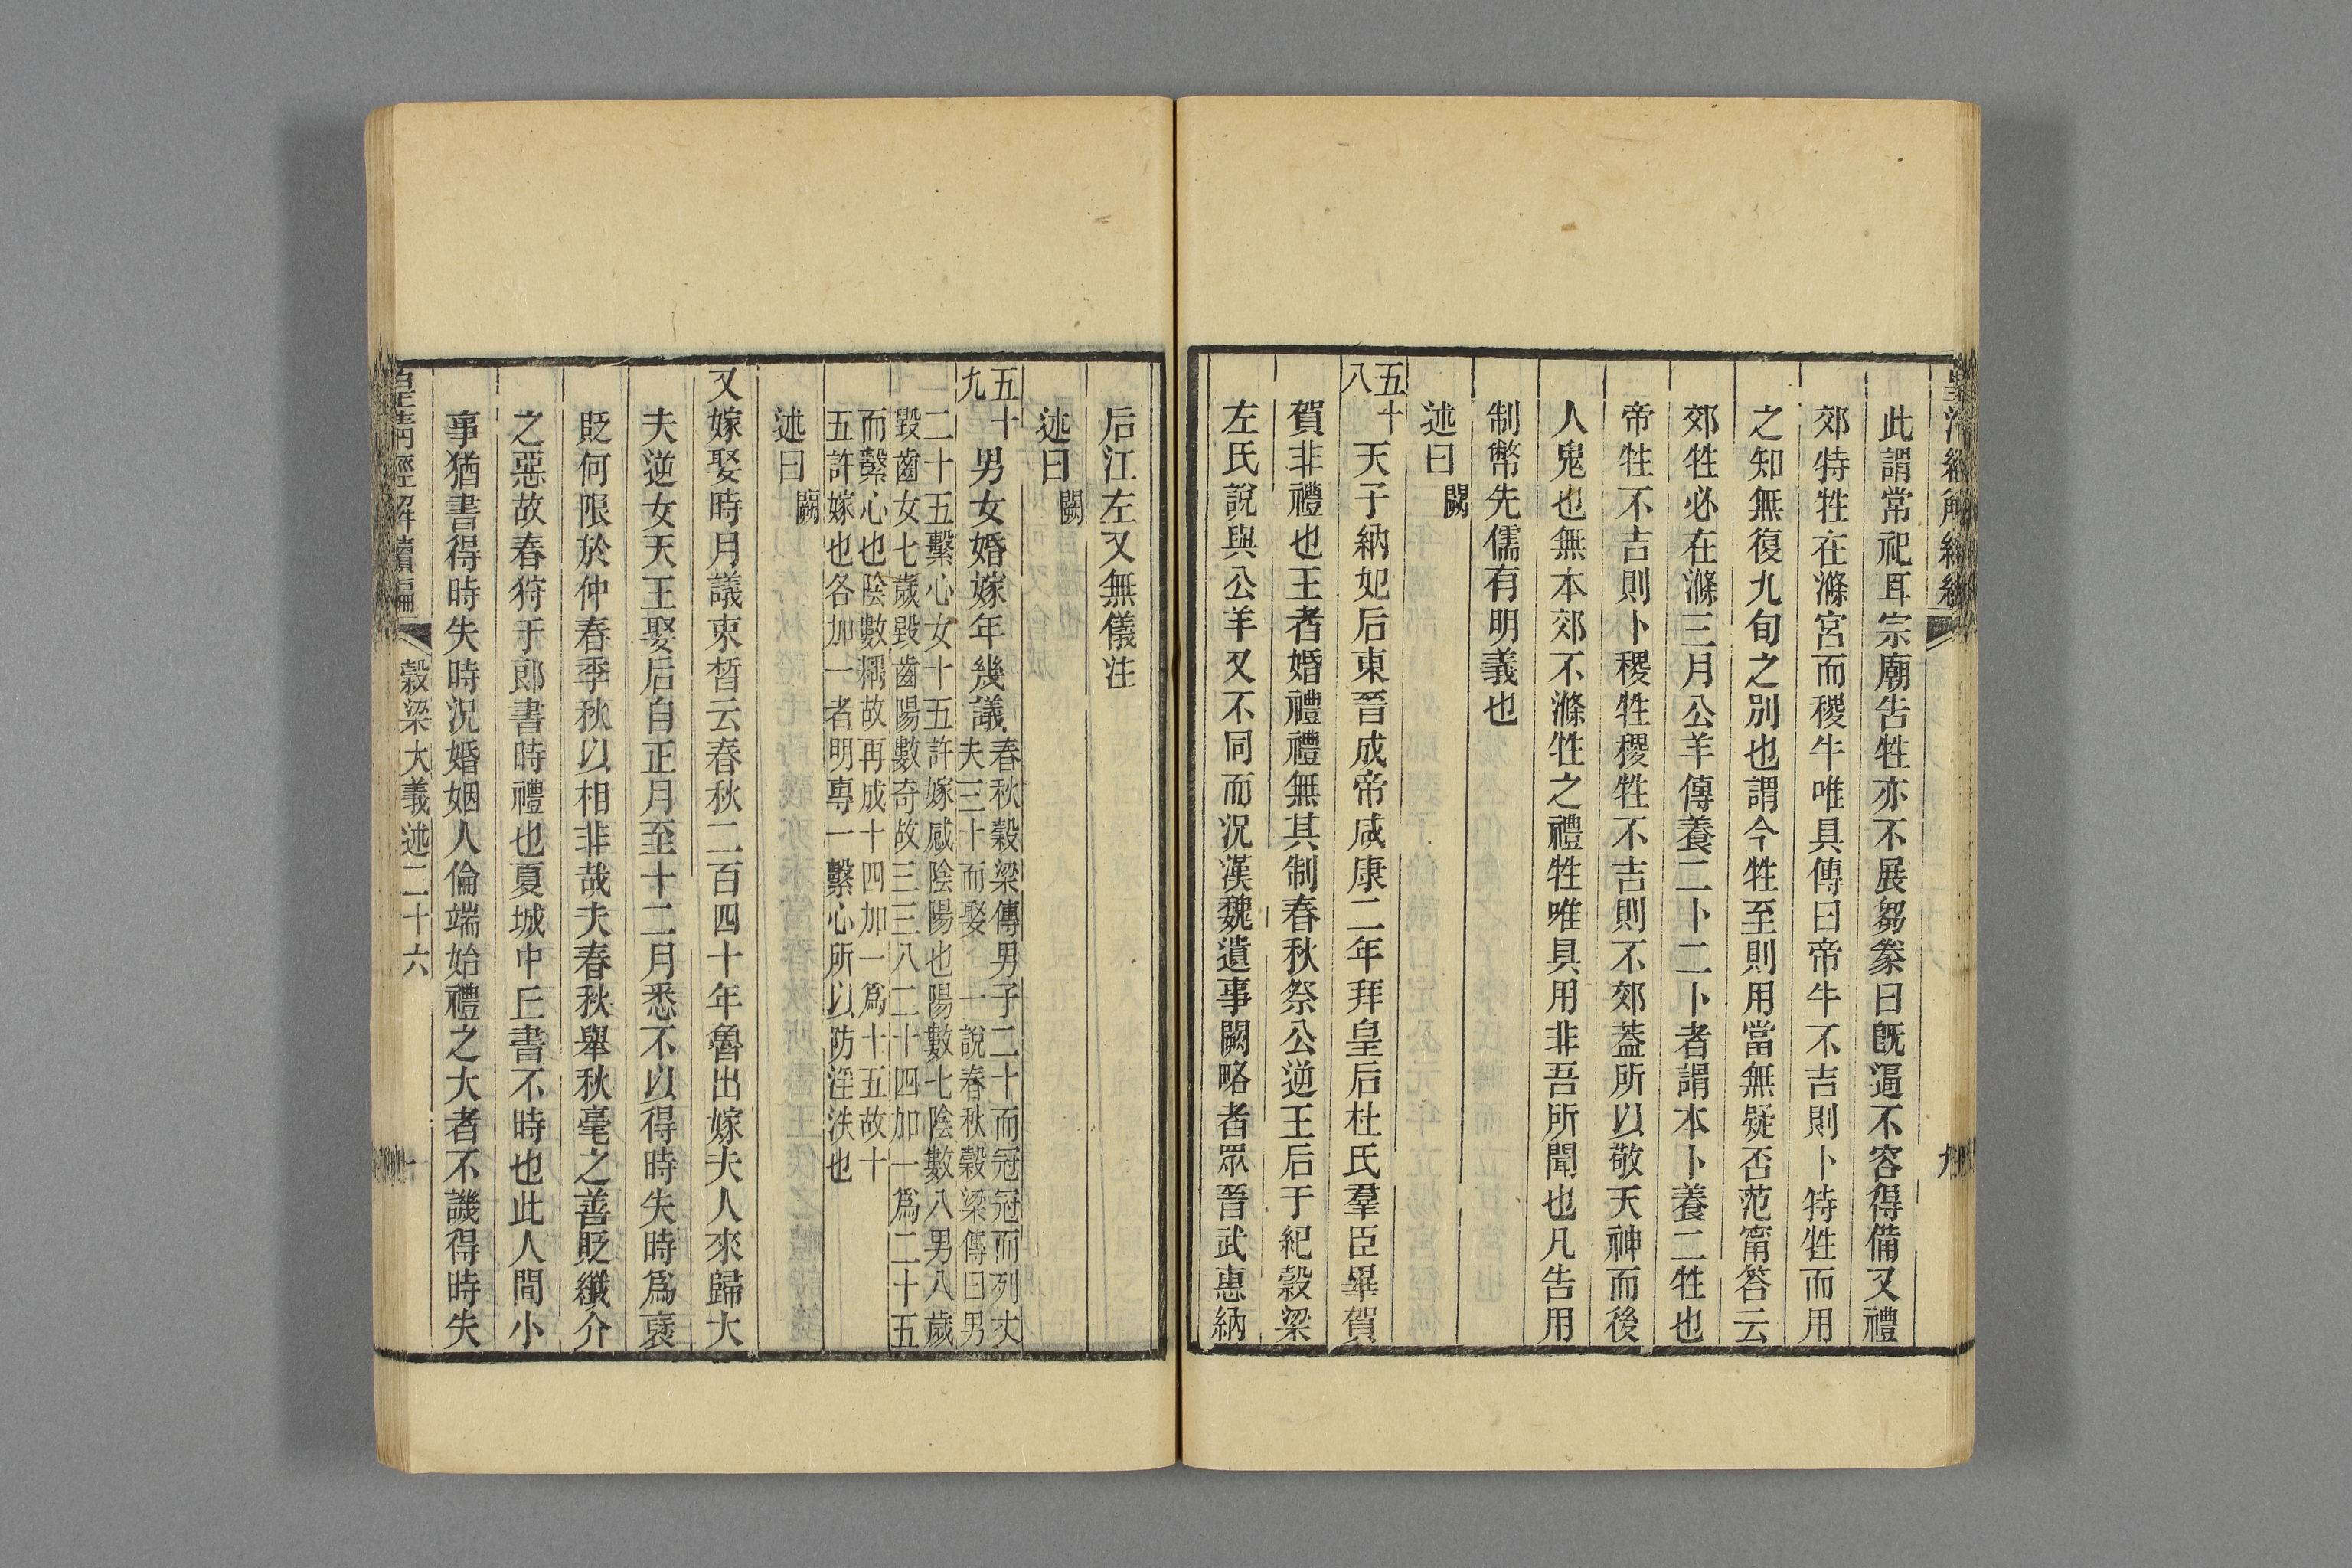 此謂常祀耳宗廟告牲亦不展芻豢曰旣逼不容得備又禮
郊特牲在滌宮而稷牛唯具傳曰帝牛不吉則卜特牲而用
之知無復九旬之別也謂今牲至則用當無疑否范甯答云
郊牲必在滌三月公羊傳養二卜二卜者謂本卜養二牲也
帝牲不吉則卜稷牲稷牲不吉則不郊蓋所以敬天神而後
人鬼也無本郊不滌牲之禮牲唯具用非吾所聞也凡告用
制幣先儒有明義也
述曰闕
五十八 天子納妃后東晉成帝咸康二年拜皇后杜氏羣臣畢賀
賀非禮也王者婚禮禮無其制春秋祭公逆王后于紀穀梁
左氏說與公羊又不同而況漢魏遺事闕略者眾晉武惠納
后江左又無儀注
述曰闕
五十九 男女婚嫁年幾議春秋穀梁傳男子二十而冠冠而列丈
夫三十而娶一說春秋穀梁傳曰男
二十五繫心女十五許嫁感陰陽也陽數七陰數八男八歲
毀齒女七歲毀齒陽數奇故三三八二十四加一爲二十五
而繫心也陰數耦故再成十四加一爲十五故十
五許嫁也各加一者明專一繫心所以防淫泆也
述曰闕
又嫁娶時月議束晳云春秋二百四十年魯出嫁夫人來歸大
夫逆女天王娶后自正月至十二月悉不以得時失時爲襃
貶何限於仲春季秋以相非哉夫春秋舉秋毫之善貶纖介
之惡故春狩于郎書時禮也夏城中丘書不時也此人間小
事猶書得時失時況婚姻人倫端始禮之大者不譏得時失
皇清經解續編 穀梁大義述二十六